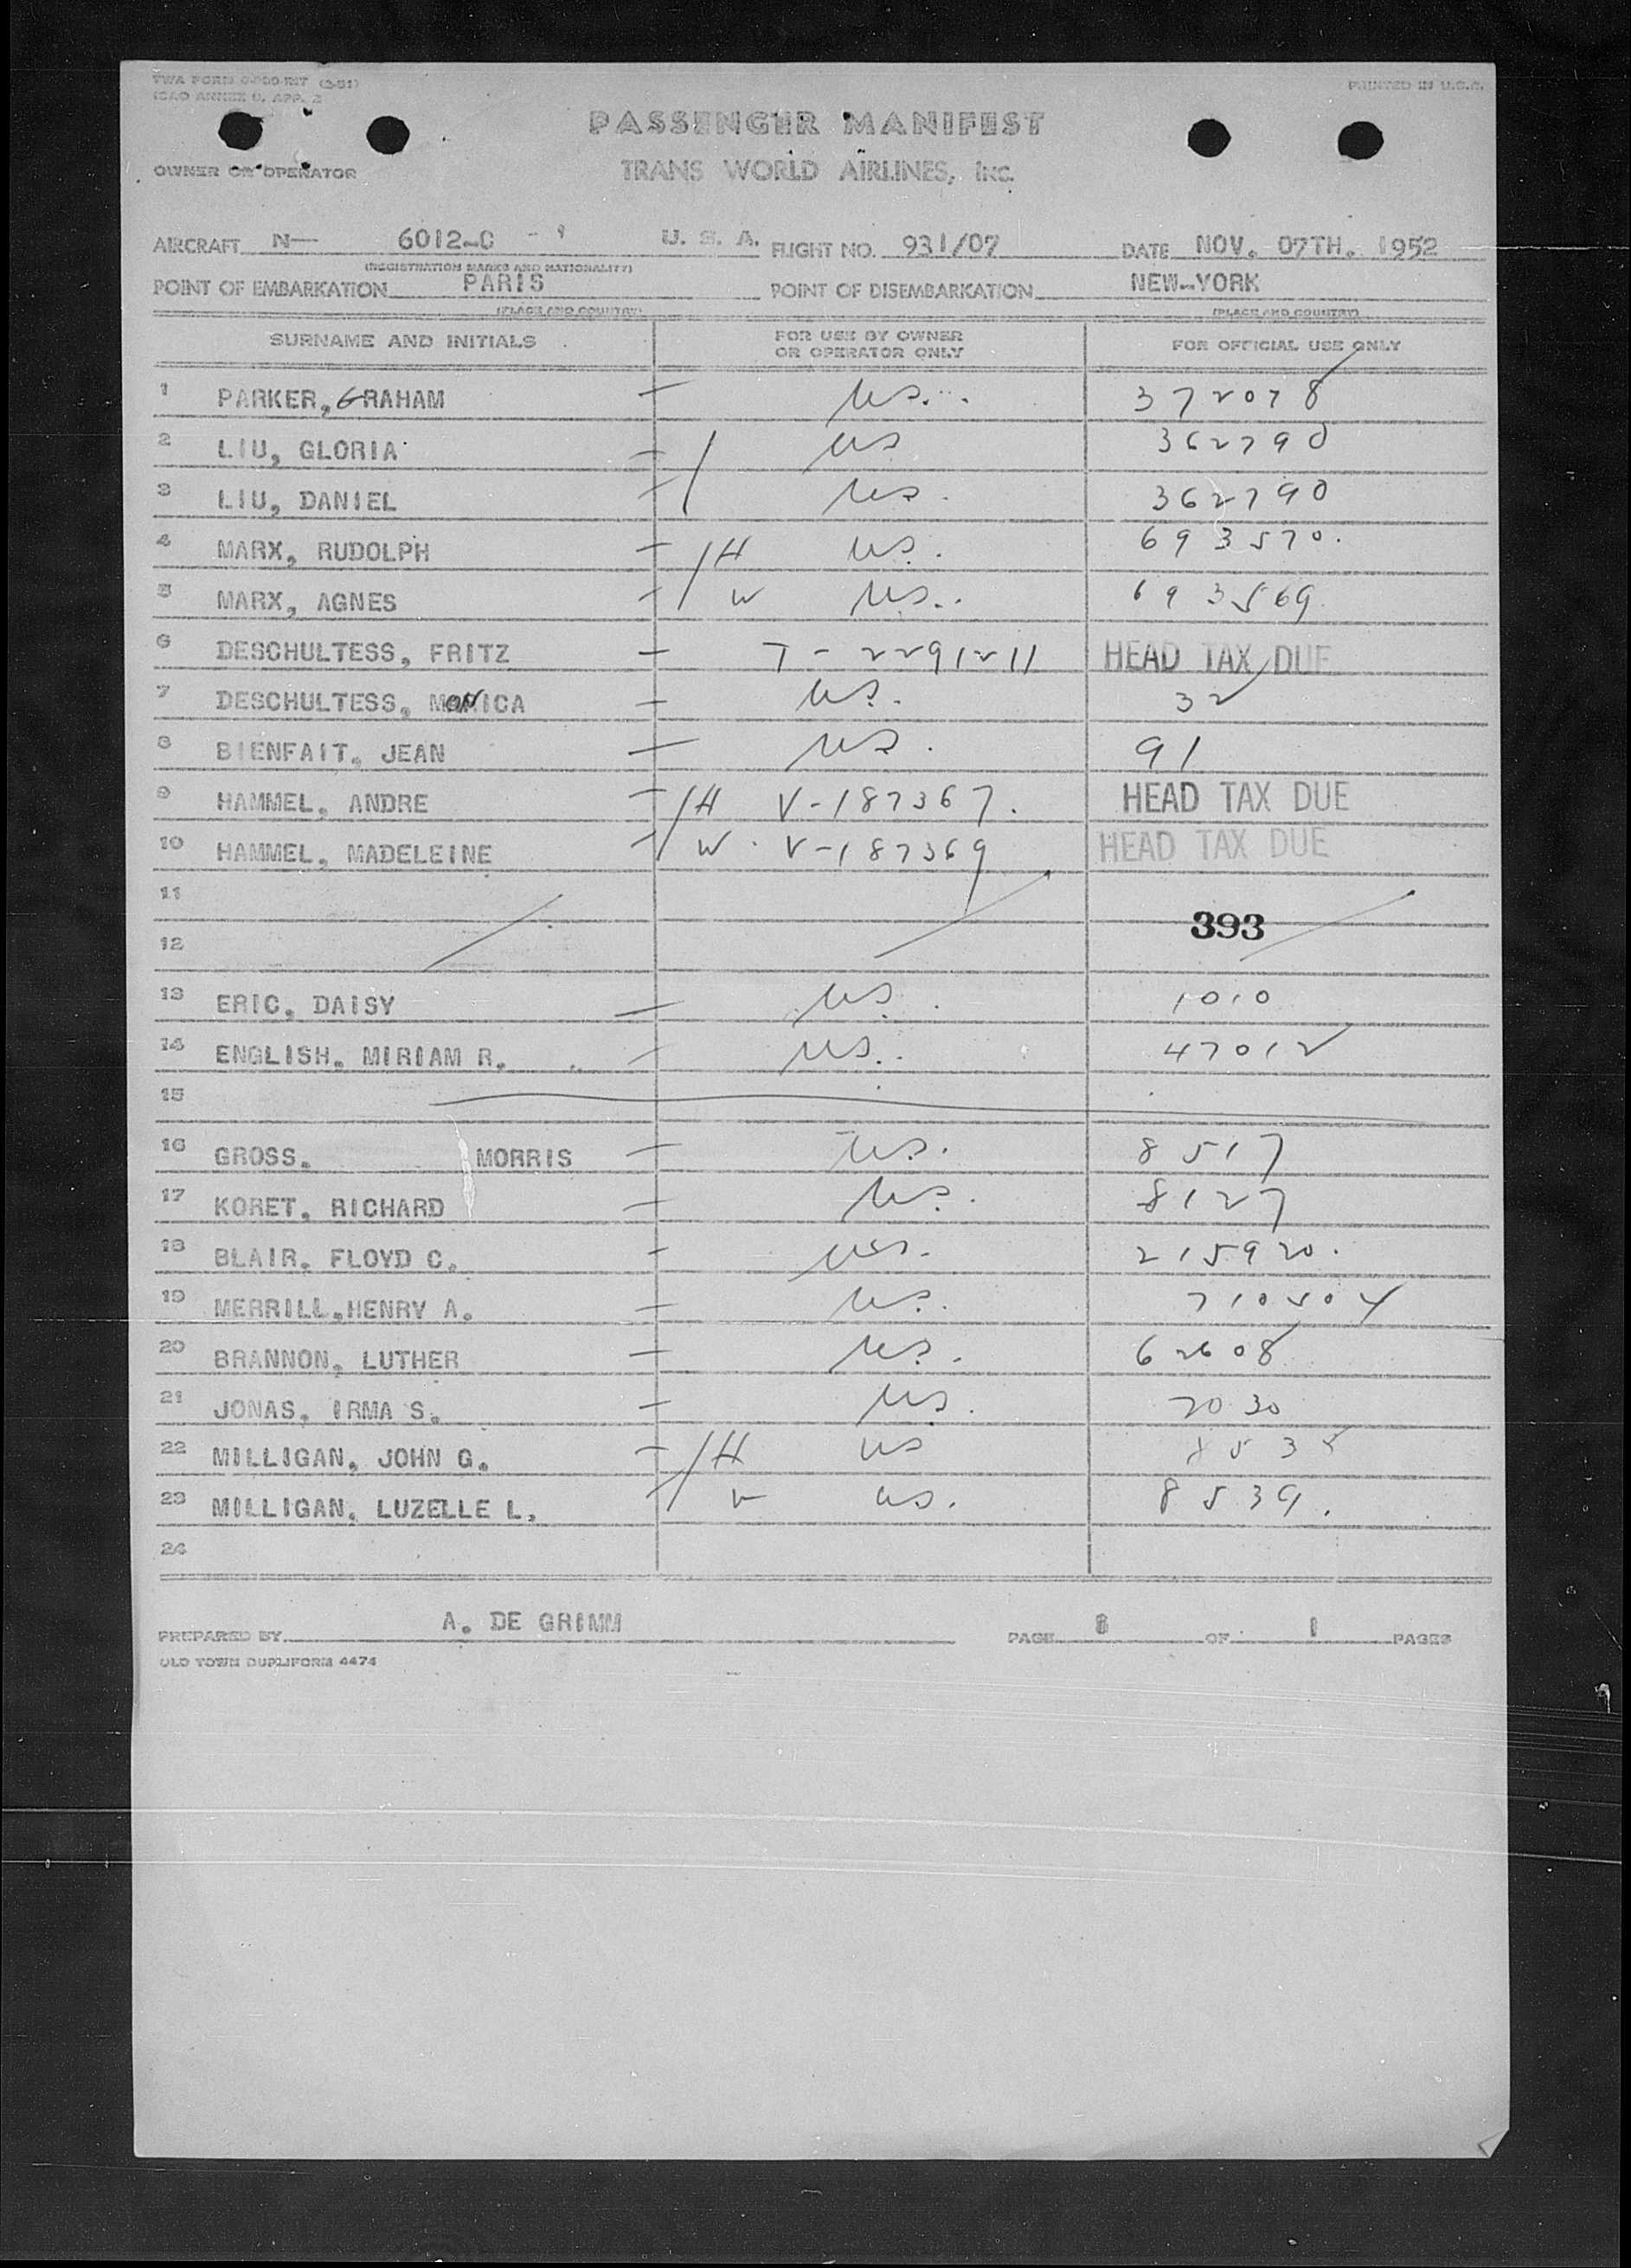 TWA FORM
ICAO ANNEX 9, APP. 2
PRINTED IN U.S.A.
PASSENGER MANIFEST
OWNER OR OPERATOR
TRANS WORLD AIRLINES, INC.
AIRCRAFT N— 6012-C U. S. A. FLIGHT NO. 931/07 DATE NOV. 07TH. 1952
(REGISTRATION MARKS AND NATIONALITY)
POINT OF EMBARKATION PARIS POINT OF DISEMBARKATION NEW-YORK
(PLACE AND COUNTRY) (PLACE AND COUNTRY)
SURNAME AND INITIALS FOR USE BY OWNER OR OPERATOR ONLY FOR OFFICIAL USE ONLY
1 PARKER, GRAHAM — US. 372078
2 LIU, GLORIA — US 362790
3 LIU, DANIEL — US. 362790
4 MARX, RUDOLPH — H US. 693570.
5 MARX, AGNES — W US. 693569
6 DESCHULTESS, FRITZ — T-2291211 HEAD TAX DUE
7 DESCHULTESS, MONICA — US. 32
8 BIENFAIT, JEAN — US. 91
9 HAMMEL, ANDRE — H V-187367. HEAD TAX DUE
10 HAMMEL, MADELEINE — W. V-187369 HEAD TAX DUE
11
393
12
13 ERIC, DAISY — US. 1010
14 ENGLISH, MIRIAM R. — US. 47012
15
16 GROSS, MORRIS — US. 8517
17 KORET, RICHARD — US. 8127
18 BLAIR, FLOYD C. — US. 215920.
19 MERRILL,HENRY A. — US.
20 BRANNON, LUTHER — US. 62608
21 JONAS, IRMA S. — US. 2030
22 MILLIGAN, JOHN G. — H US
23 MILLIGAN, LUZELLE L. US. 8539.
24
PREPARED BY A. DE GRIMM PAGE OF 1 PAGES
OLD TOWN DUPLIFORM 4474